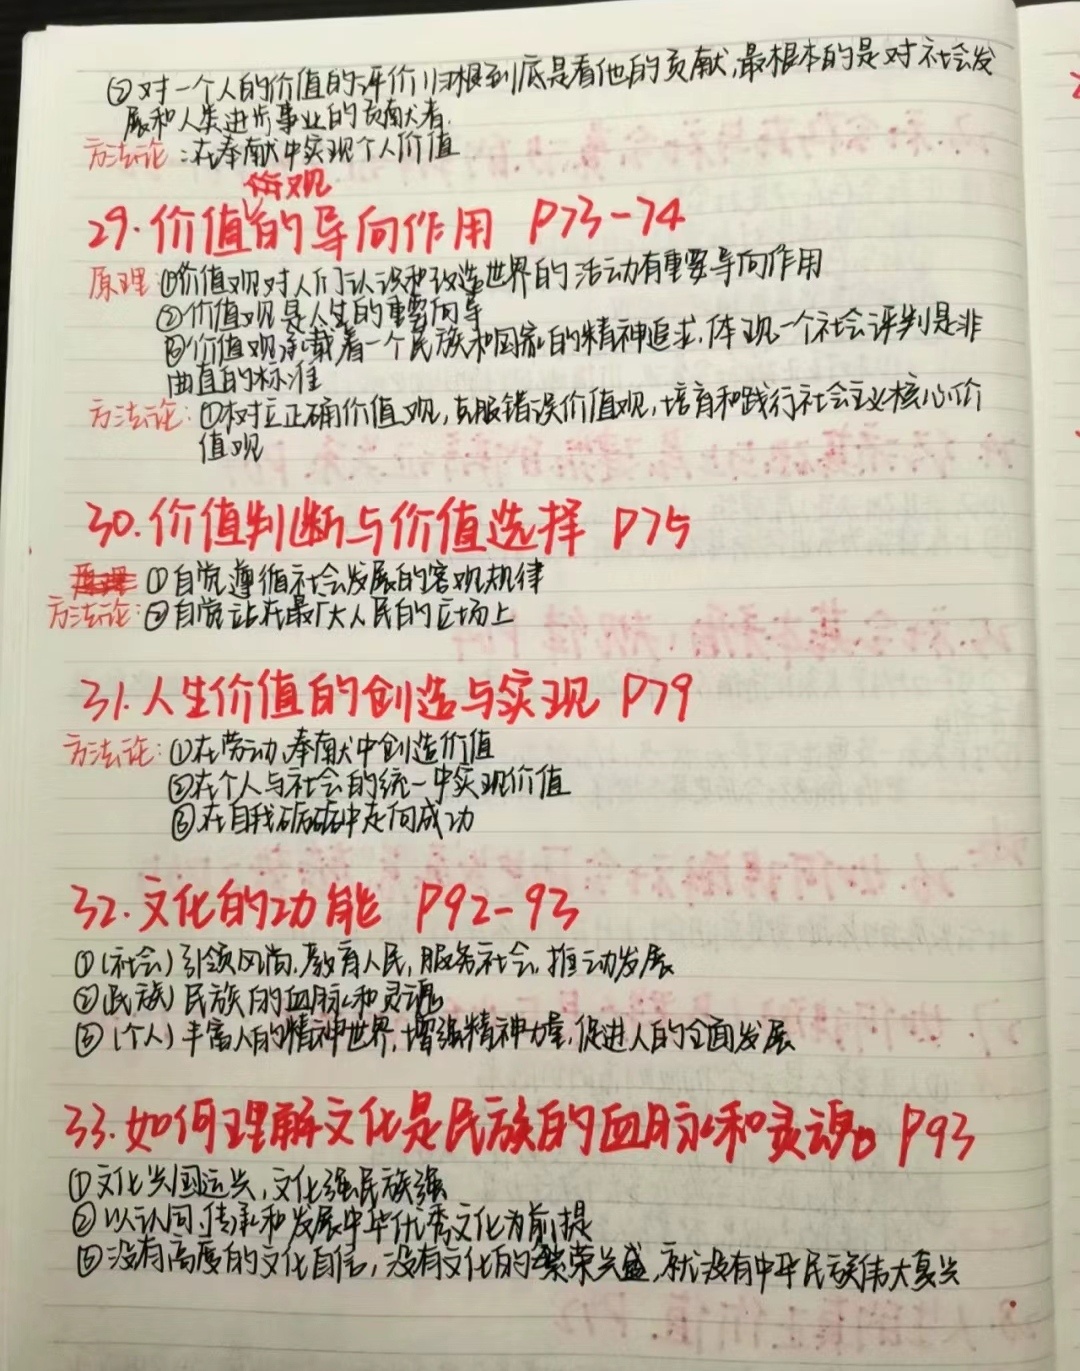 ②对一个人的价值的评价归根到底是看他的贡献,最根本的是对社会发
展和人类进步事业的贡献者.
方法论:在奉献中实现个人价值
29.价值观的导向作用 P73-74
原理:①价值观对人们认识和改造世界的活动有重要导向作用
②价值观是人生的重要向导
③价值观承载着一个民族和国家的精神追求,体现一个社会评判是非
曲直的标准
方法论:①树立正确价值观,克服错误价值观,培育和践行社会主义核心价
值观
30.价值判断与价值选择 P75
①自觉遵循社会发展的客观规律
方法论:②自觉站在最广大人民的立场上
31.人生价值的创造与实现 P79
方法论:①在劳动、奉献中创造价值
②在个人与社会的统一中实现价值
③在自我砺砺中走向成功
32.文化的功能 P92-93
①(社会)引领风尚,教育人民,服务社会,推动发展
②(民族)民族的血脉和灵魂
③(个人)丰富人的精神世界,增强精神力量,促进人的全面发展
33.如何理解文化是民族的血脉和灵魂 P93
①文化兴国运兴,文化强民族强
②以认同、传承和发展中华优秀文化为前提
③没有高度的文化自信,没有文化的繁荣兴盛,就没有中华民族伟大复兴